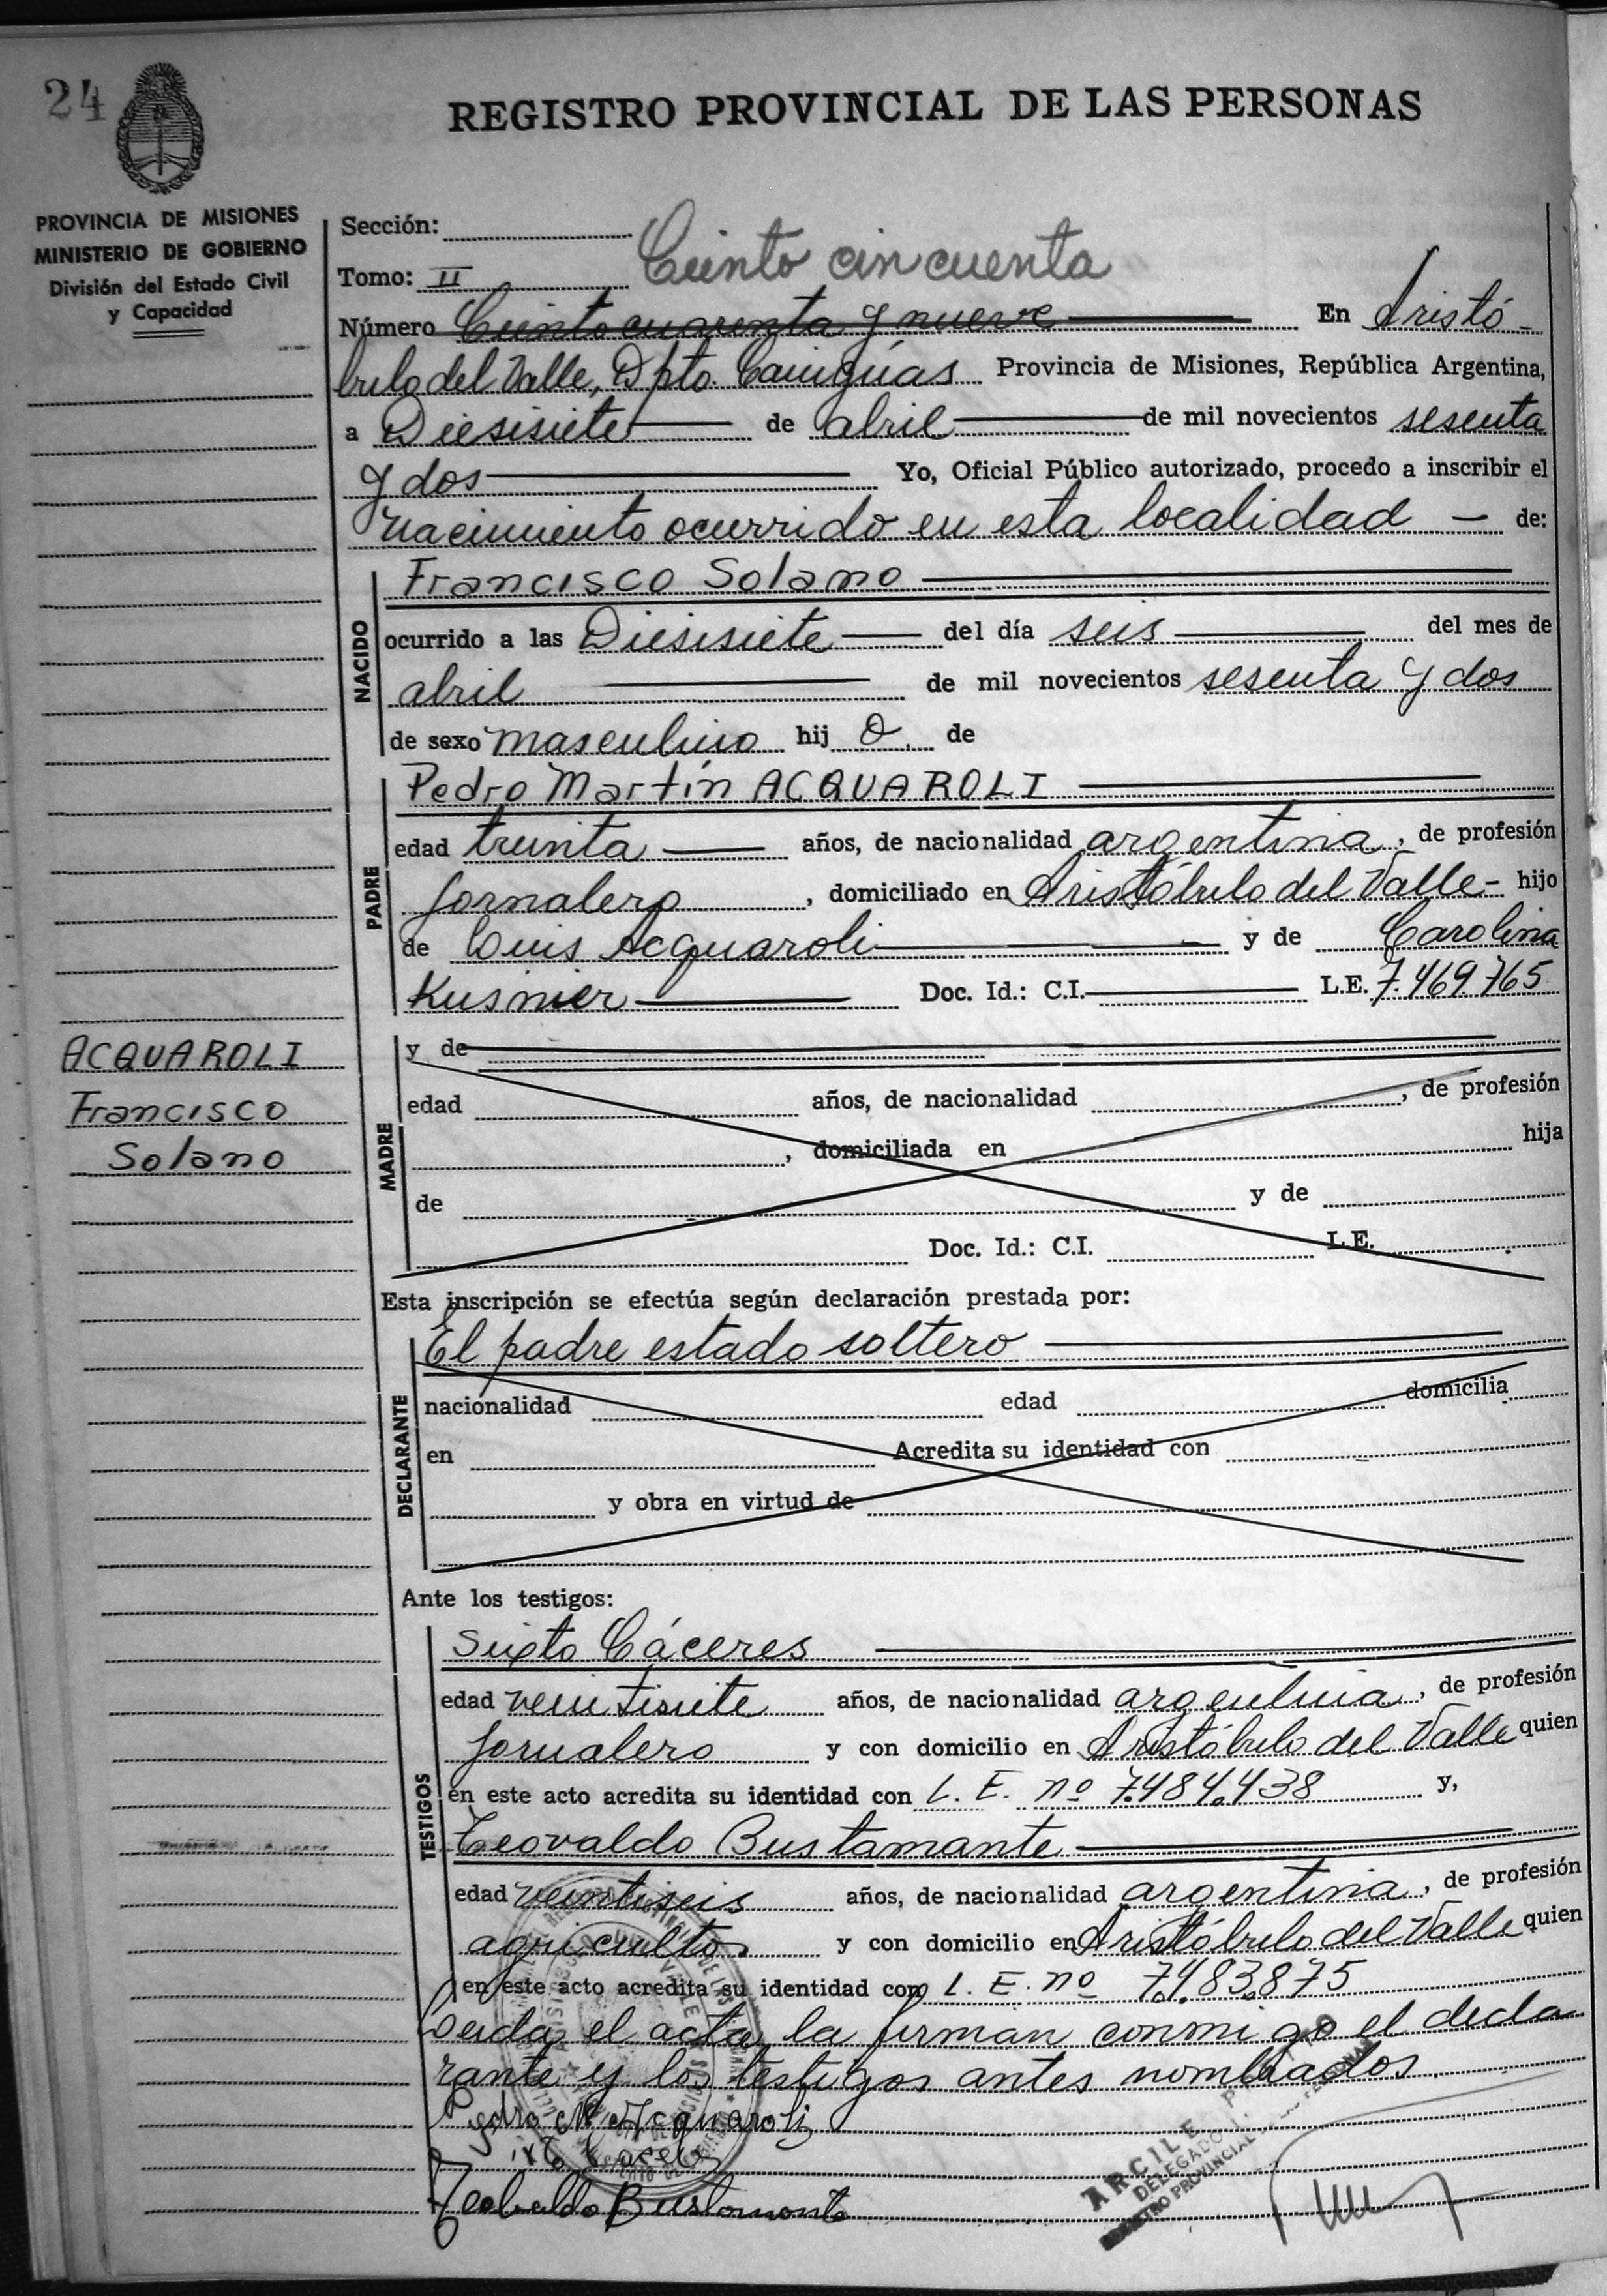 24
REGISTRO PROVINCIAL DE LAS PERSONAS
PROVINCIA DE MISIONES
MINISTERIO DE GOBIERNO
División del Estado Civil
y Capacidad
Sección:
Ciento cincuenta
Tomo: II
Número Ciento cuarenta y nueve En Aristó-
bulo del Valle, Dpto. Cainguas Provincia de Misiones, República Argentina,
a Diesisiete de abril de mil novecientos sesenta
y dos Yo, Oficial Público autorizado, procedo a inscribir el
nacimiento ocurrido en esta localidad — de:
NACIDO
Francisco Solano
ocurrido a las Diesisiete del día seis del mes de
abril de mil novecientos sesenta y dos
de sexo masculino hij o. de
PADRE
Pedro Martín ACQUAROLI
edad treinta años, de nacionalidad argentina, de profesión
Jornalero, domiciliado en Aristóbulo del Valle - hijo
de Luis Acquaroli y de Carolina
Kusnier Doc. Id.: C.I. L.E. 7.469.765
ACQUAROLI
Francisco
Solano
MADRE
y de
edad años, de nacionalidad , de profesión
, domiciliada en hija
de y de
Doc. Id.: C.I. L.E.
Esta inscripción se efectúa según declaración prestada por:
DECLARANTE
El padre estado soltero
nacionalidad edad domicilia
en Acredita su identidad con
y obra en virtud de
Ante los testigos:
TESTIGOS
Sixto Cáceres
edad veintisiete años, de nacionalidad argentina, de profesión
Jornalero y con domicilio en Aristóbulo del Valle quien
en este acto acredita su identidad con L. E. nº 7.484.438 y,
Teovaldo Bustamante
edad veintiseis años, de nacionalidad argentina, de profesión
agricultor y con domicilio en Aristóbulo del Valle quien
en este acto acredita su identidad con L. E. nº 7.483.875
Leida el acta, la firman conmigo el decla-
rante y los testigos antes nombrados.
Pedro M Acquaroli
Sixto Caceres
Teobaldo Bustamonte
ARCILE
DELEGADO
REGISTRO PROVINCIAL DE LAS PERSONAS